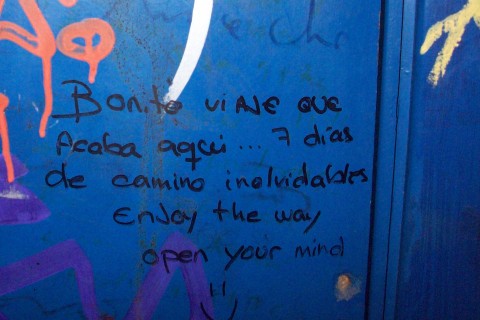 Bonito viaje que
Acaba aqui... 7 días
de camino inolvidables
Enjoy the way
open your mind